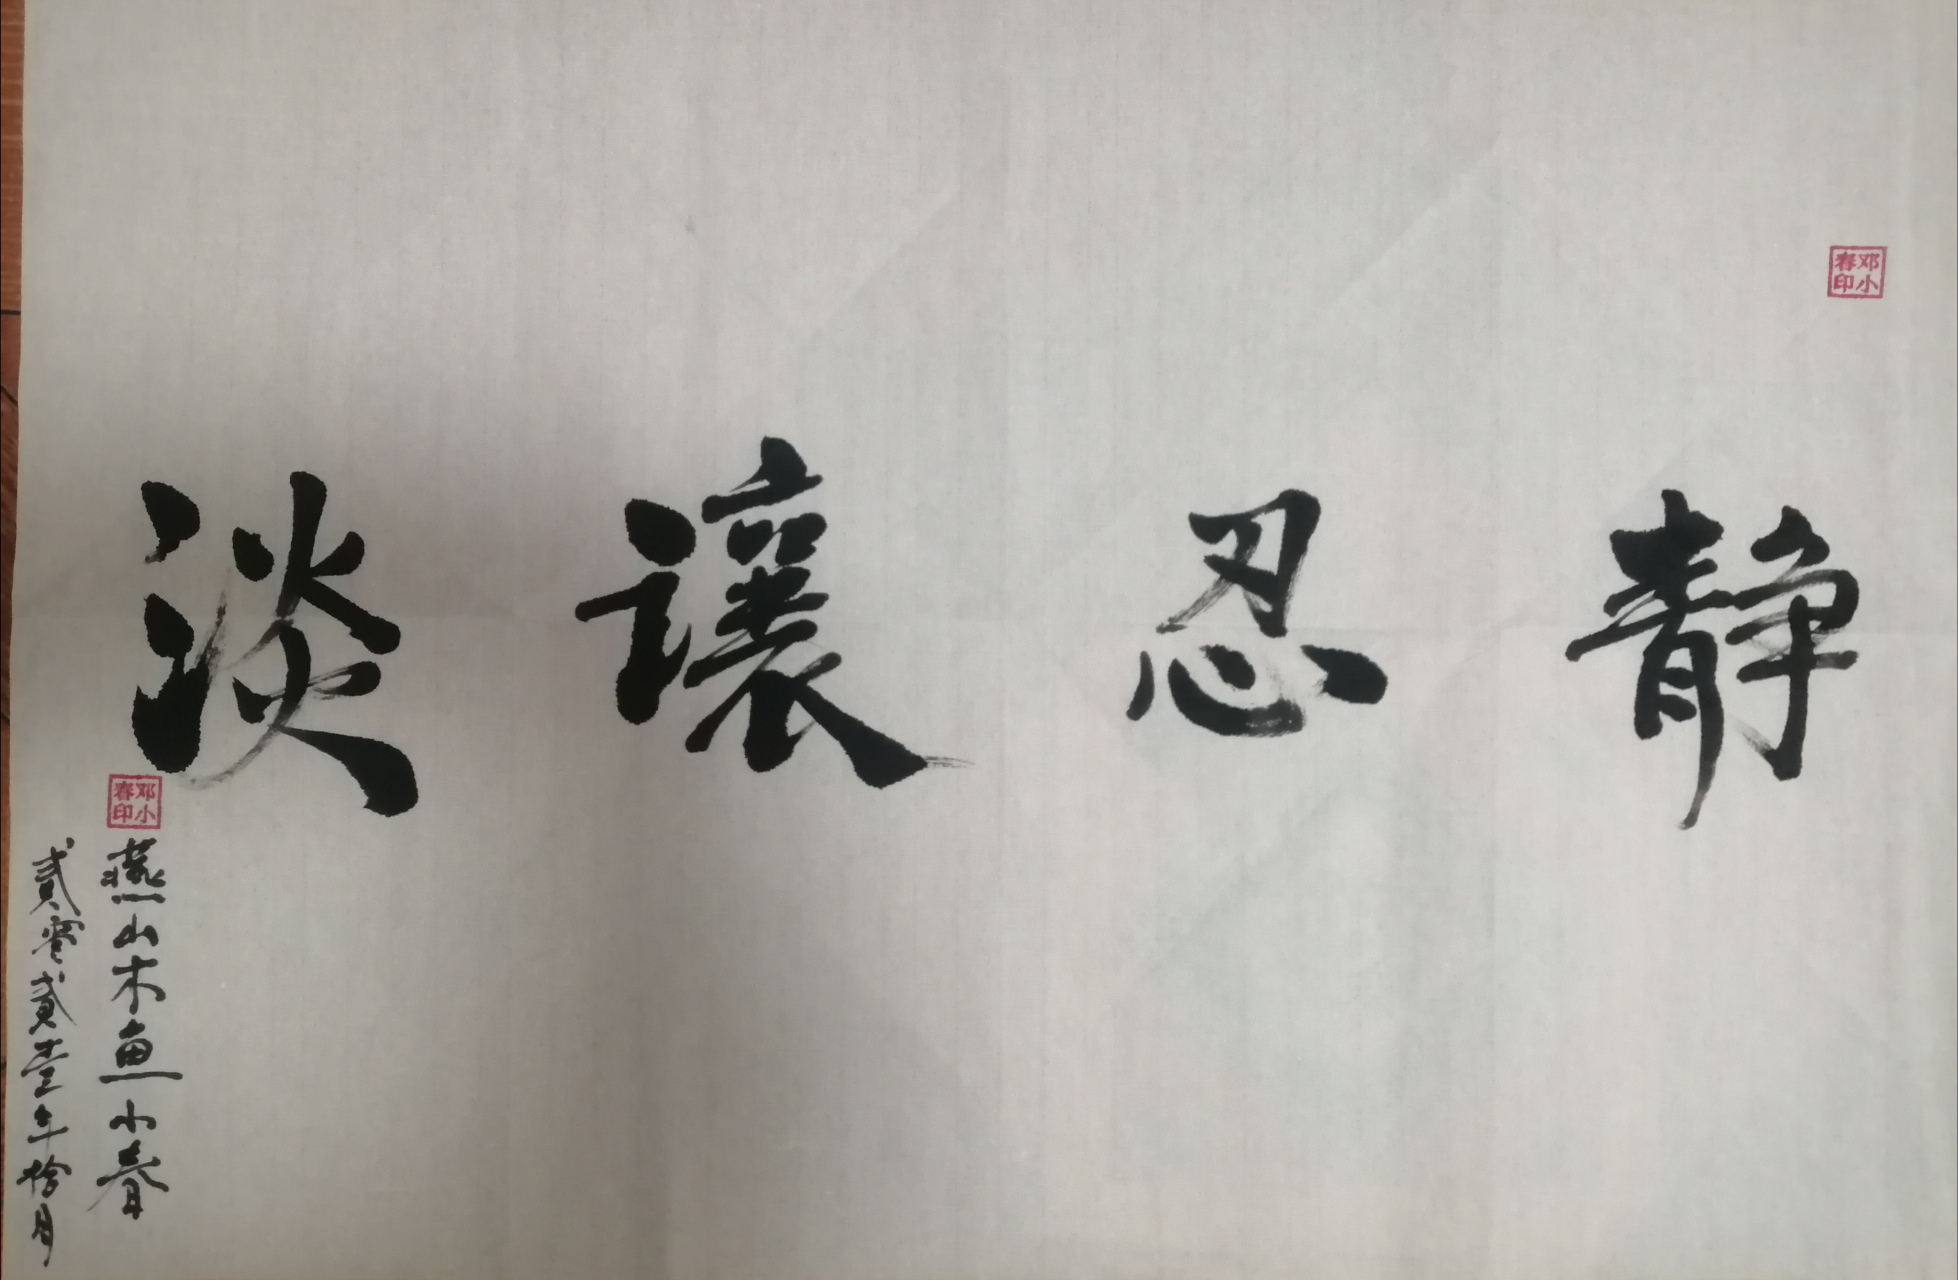 静忍讓淡
邓小春印
邓小春印
燕山木鱼小春
贰零贰壹年拾月